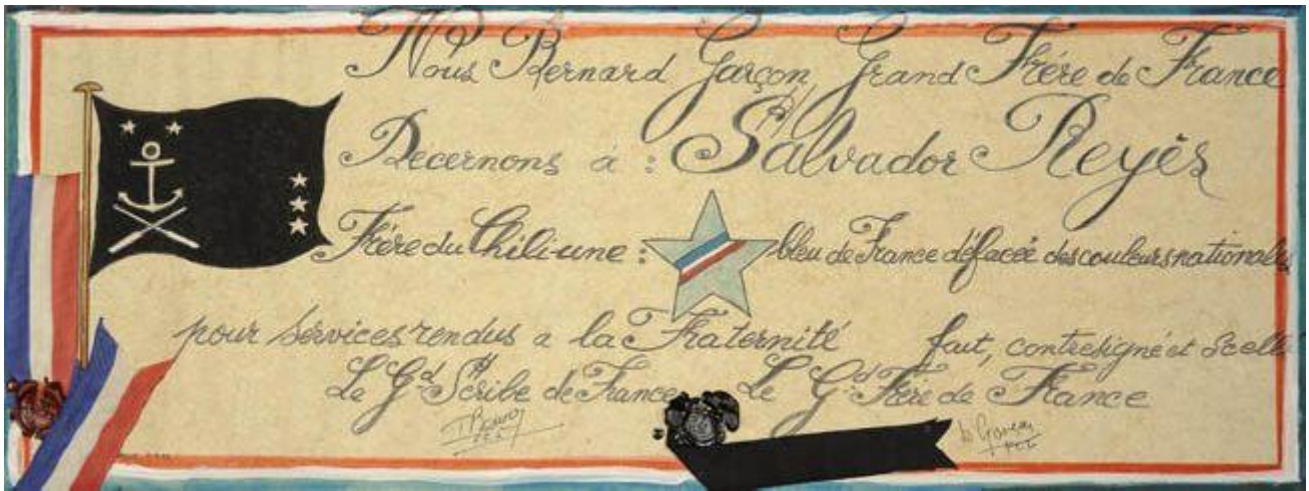 Nous Bernard Garçon, Grand Frère de France
Decernons à : Salvador Reyès
Frère du Chili-une : bleu de France défacée des couleurs nationales
pour services rendus a la Fraternité fait, contresigné et scellé
Le Gd Scribe de France Le Gd Frère de France